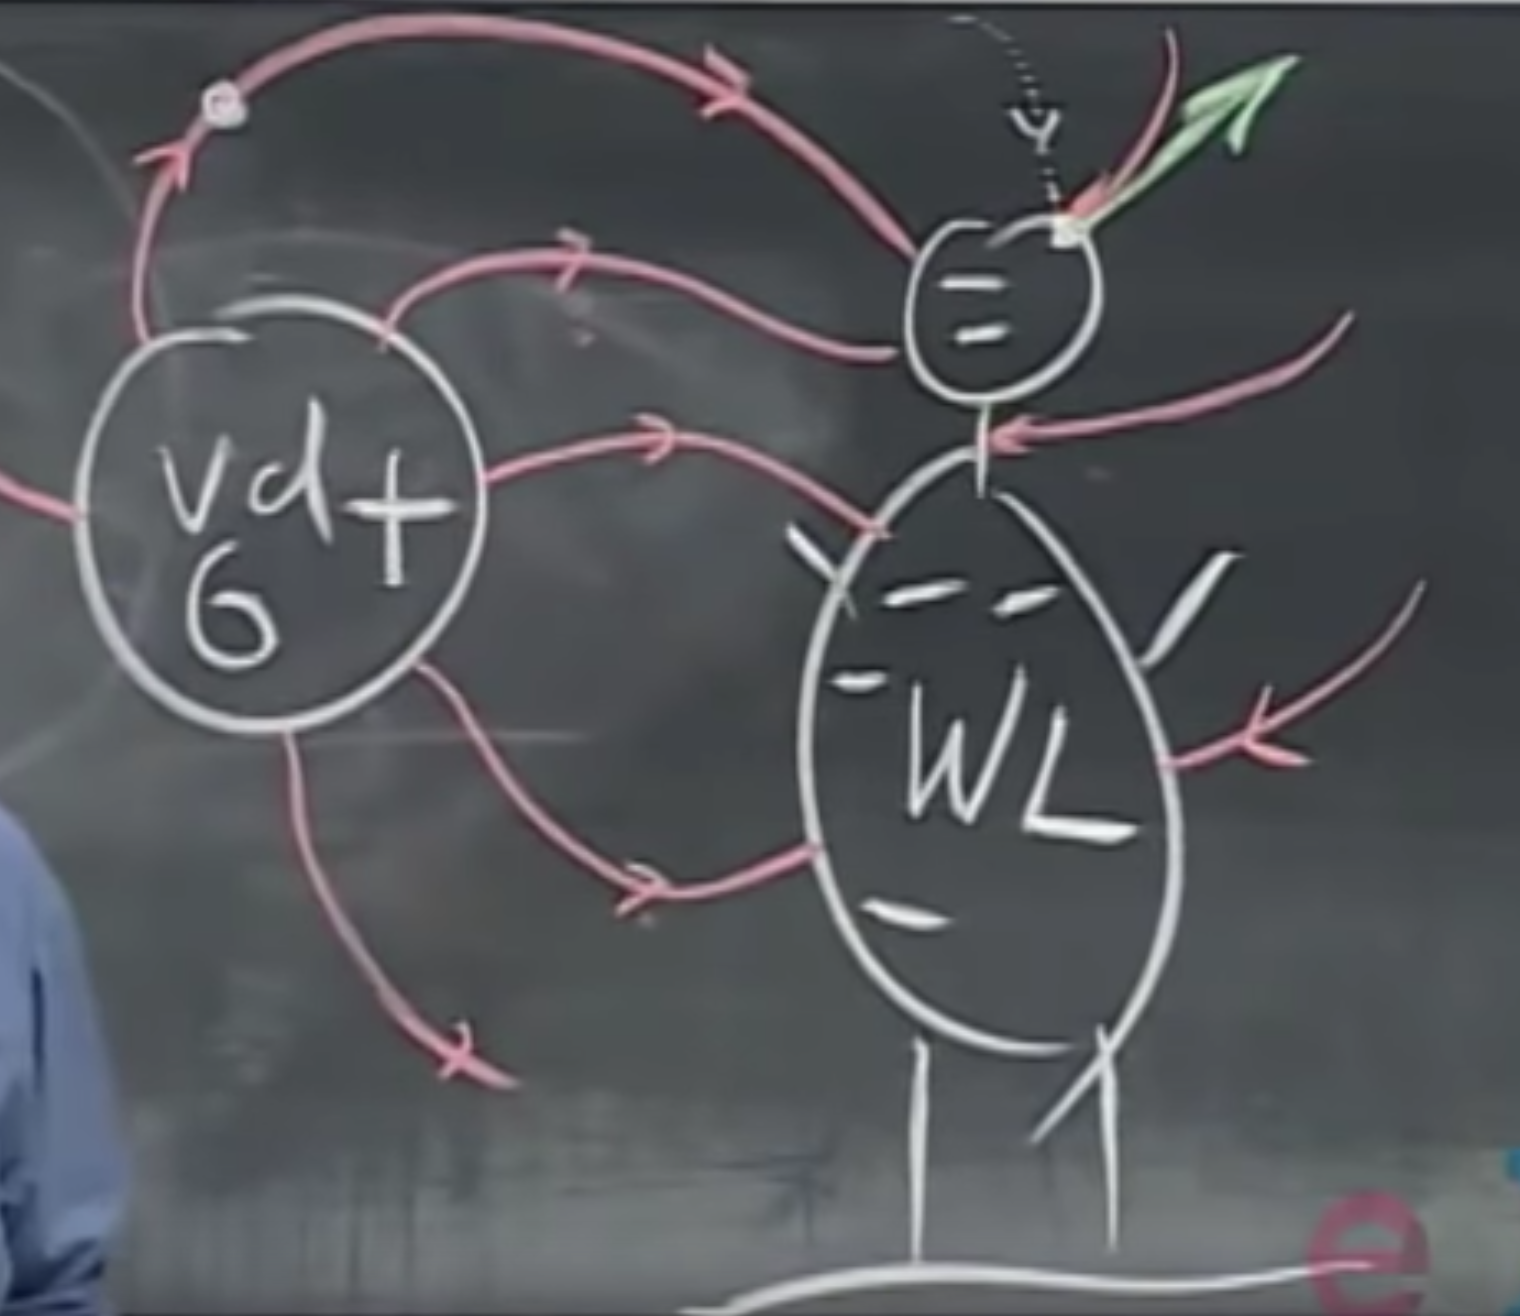 vd+
G
WL
e